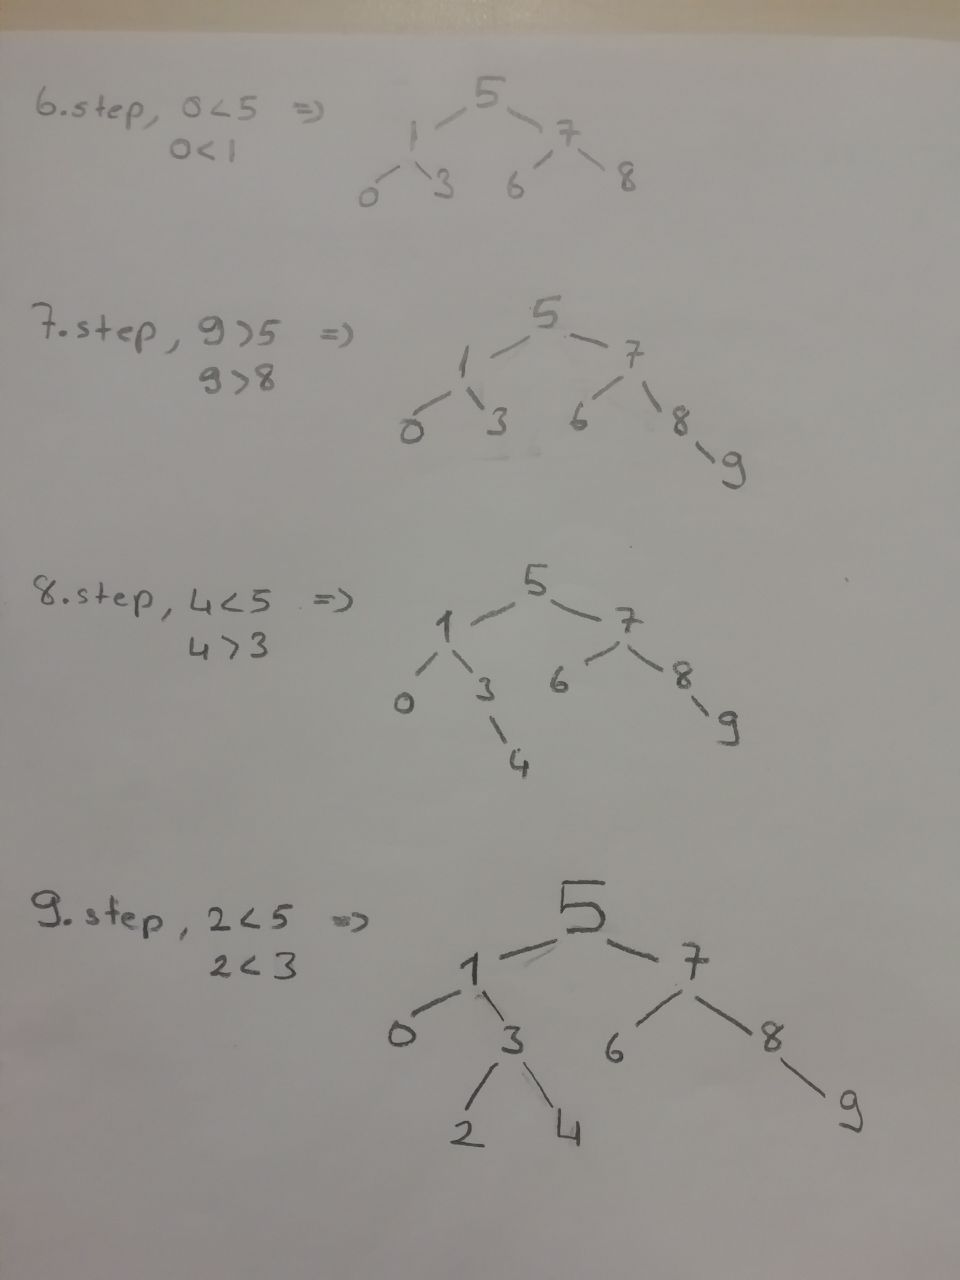 6.step, 0<5 =>
0<1
5
1 7
0 3 6 8
7.step, 9>5 =>
9>8
5
1 7
0 3 6 8
9
8.step, 4<5 =>
4>3
5
1 7
0 3 6 8
4 9
9.step, 2<5 =>
2<3
5
1 7
0 3 6 8
2 4 9